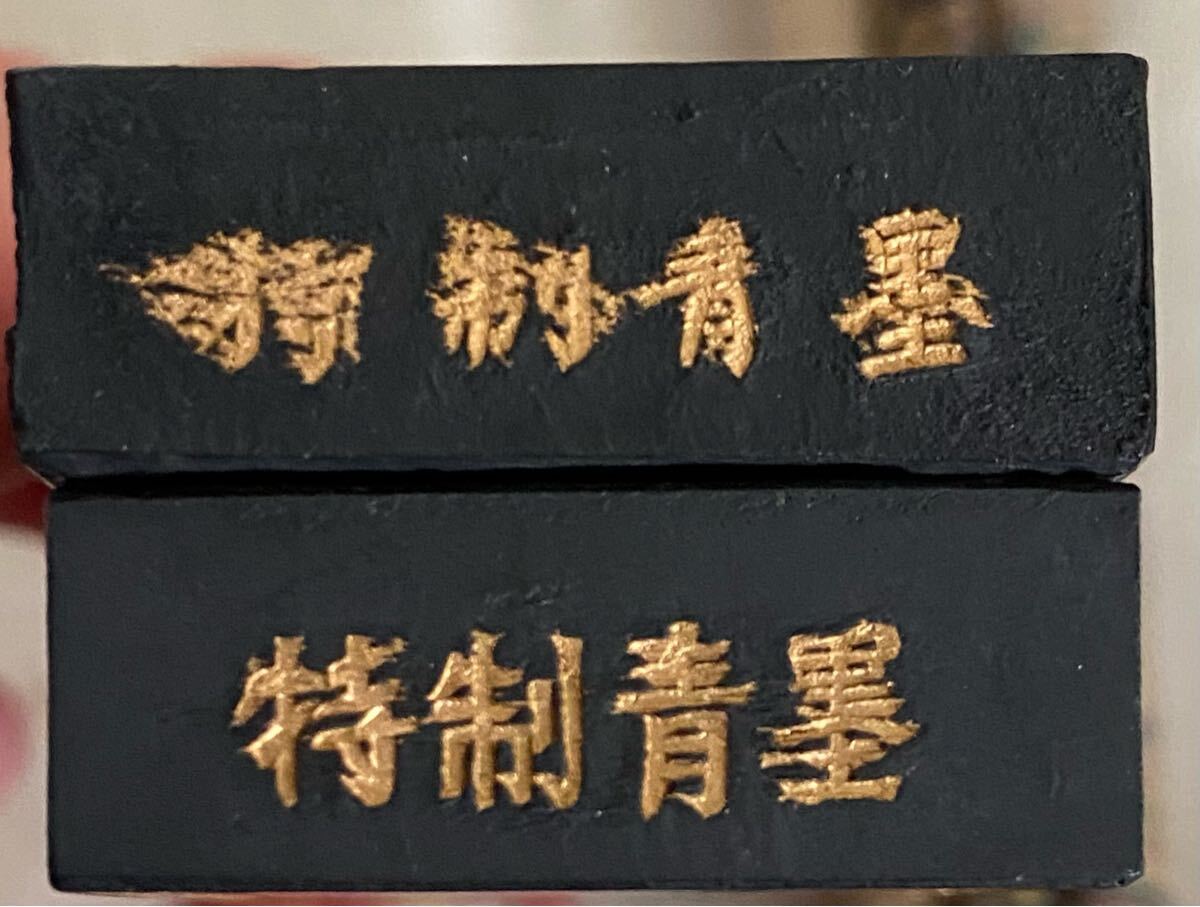 特制青墨
特制青墨